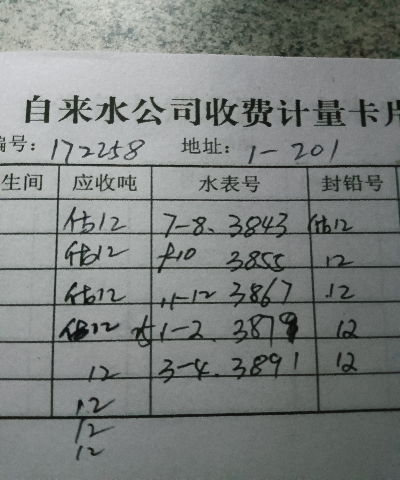 自来水公司收费计量卡片
编号: 172258 地址: 1-201
生间 应收吨 水表号 封铅号
估12 7-8. 3843 估12
估12 9-10 3855 12
估12 11-12 3867 12
估12 1-2. 3879 12
12 3-4. 3891 12
12
12
12